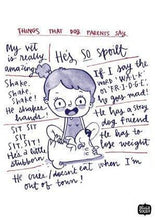 THINGS THAT DOG PARENTS SAY
My vet
is really
amazing
He's so spoilt
Shake.
Shake.
Shake!
He shakes
hands!
If I say the
word 'W.A.L.K'
or 'F.R.I.D.G.E'
he goes mad!
He has a stray
dog friend
He has to
lose weight
SIT
SIT SIT
SIT. SIT!
He's a little
stubborn!
He over/doesn't eat when I'm
out of town!